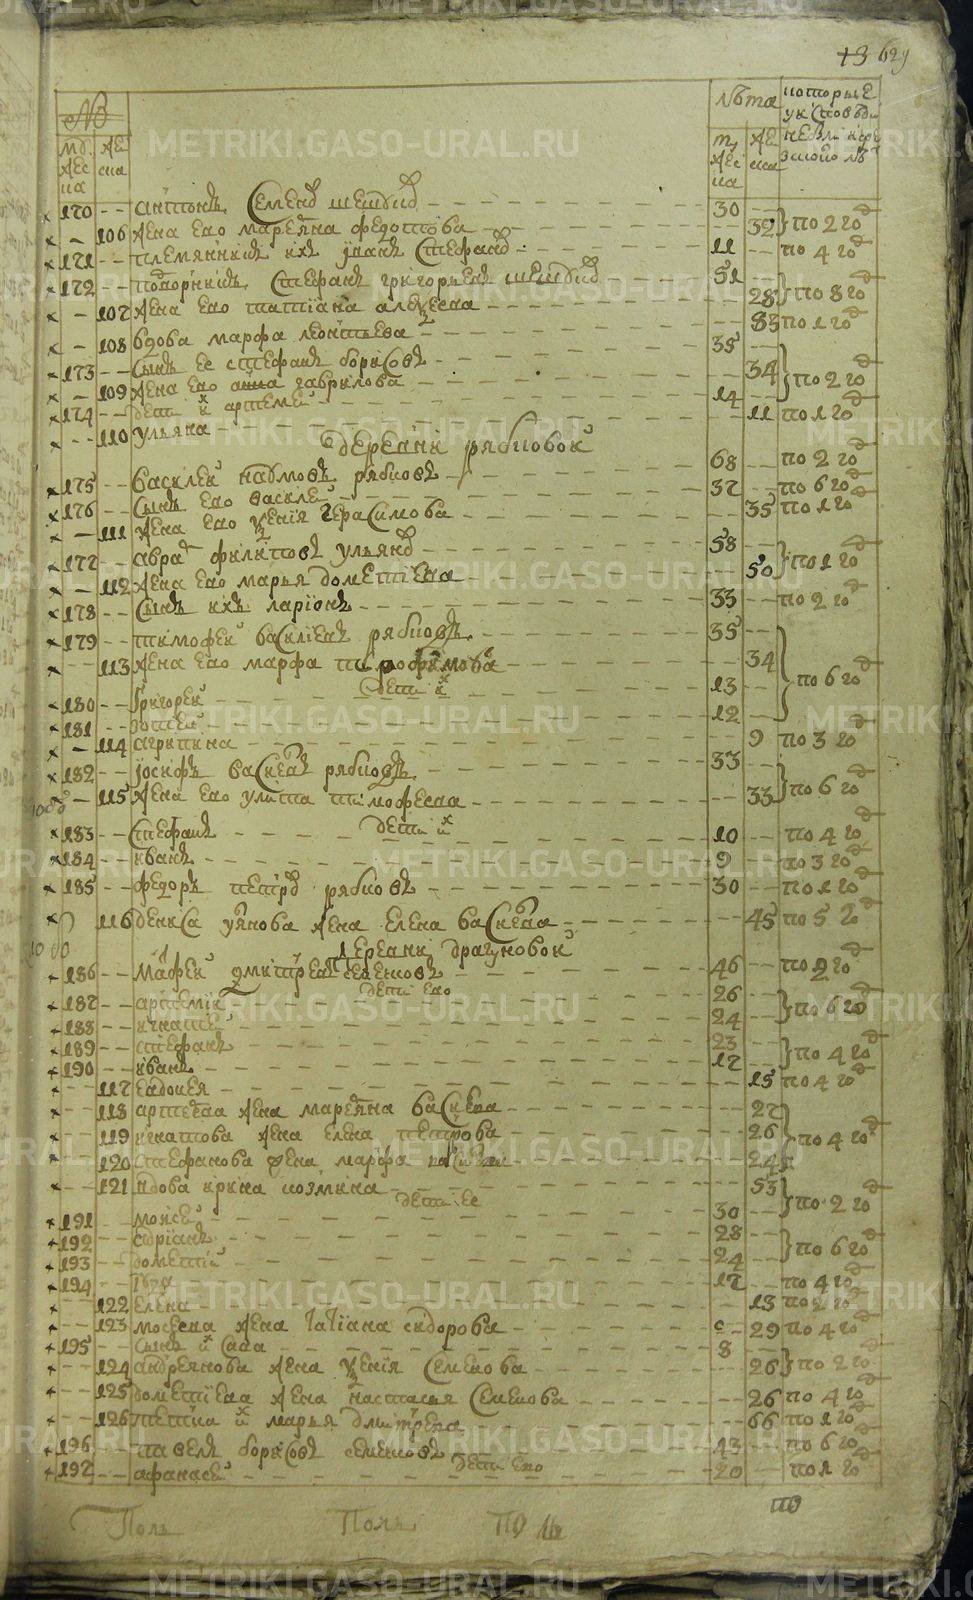 13 629
№
лѣта
которые
у исповѣди
мұ
жес
ка
же
ска
му
жес
ка
же
ска
170 антонъ Семенов шешуков 30
106 жена ево марѣяна федотова 32 по 2 го
171 племянникъ ихъ иванъ Стефанов 11 по 4 го
172 Стефанъ григорьевъ 51
107 жена ево татиана алексеева 28 по 8 го
108 вдова марфа леонтьева 83 по 1 го
173 Сынъ ее стефанъ борисовъ 35
109 жена ево анна гаврилова 34 по 2 го
174 дети их артемей 14
110 ульяна 11 по 1 го
деревни рябковой
175 василей наумовъ рябковъ 68 по 2 го
176 Сынъ ево василей 37 по 6 го
111 жена ево ксения герасимова 35 по 1 го
177 аврам филиповъ ульянов 58
112 жена ево марья дометиева 50 по 1 го
178 Сынъ ихъ ларионъ 33 по 2 го
179 тимофей василиевъ рябковъ 35
113 жена ево марфа 34 по 6 го
дети их
180 григорей 13
181 12
114 агрипина 9 по 3 го
182 иосифъ васильевъ рябковъ 33
115 жена ево улита тимофеева 33 по 6 го
дети их
183 Стефанъ 10 по 4 го
184 иванъ 9 по 3 го
185 федоръ петров рябковъ 30 по 1 го
116 дениса жена елена васильева 45 по 5 го
деревни драгуновой
186 матфей дмитреевъ семеновъ 46 по 2 го
дети ево
187 артемий 26
188 игнатей 24 по 6 го
189 стефанъ 23
190 иванъ 17 по 4 го
117 евдокея 15 по 4 го
118 артемева жена марѣяна васильева 27
119 игнатова жена елена петрова 26 по 4 го
120 стефанова жена марфа 24
121 вдова ирина козмина 53
дети ее
191 моисей 30 по 2 го
192 андриянъ 28
193 дометий 24 по 6 го
194 17 по 4 го
122 елена 13 по 2 го
123 мосеева жена татиана сидорова 29 по 4 го
195 Сынъ их Сава 8
124 андреянова жена ксения Семенова 26 по 2 го
125 дометиева жена настасья Семенова 26 по 4 го
126 тетка их марья дмитреева 66 по 1 го
196 павелъ борисовъ семеновъ 43 по 6 го
дети ево
197 афанасей 20 по 1 го